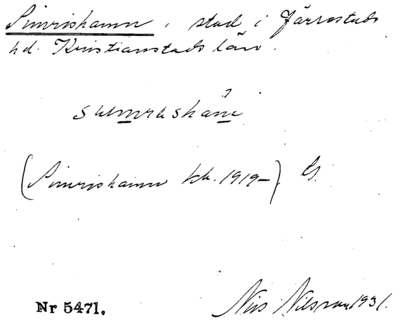 Simrishamn, stad i Järrestads
hd. Kristianstads län.
(Simrishamn kh. 1919–) G.
Nr 5471. Nils Nilsson 1931.